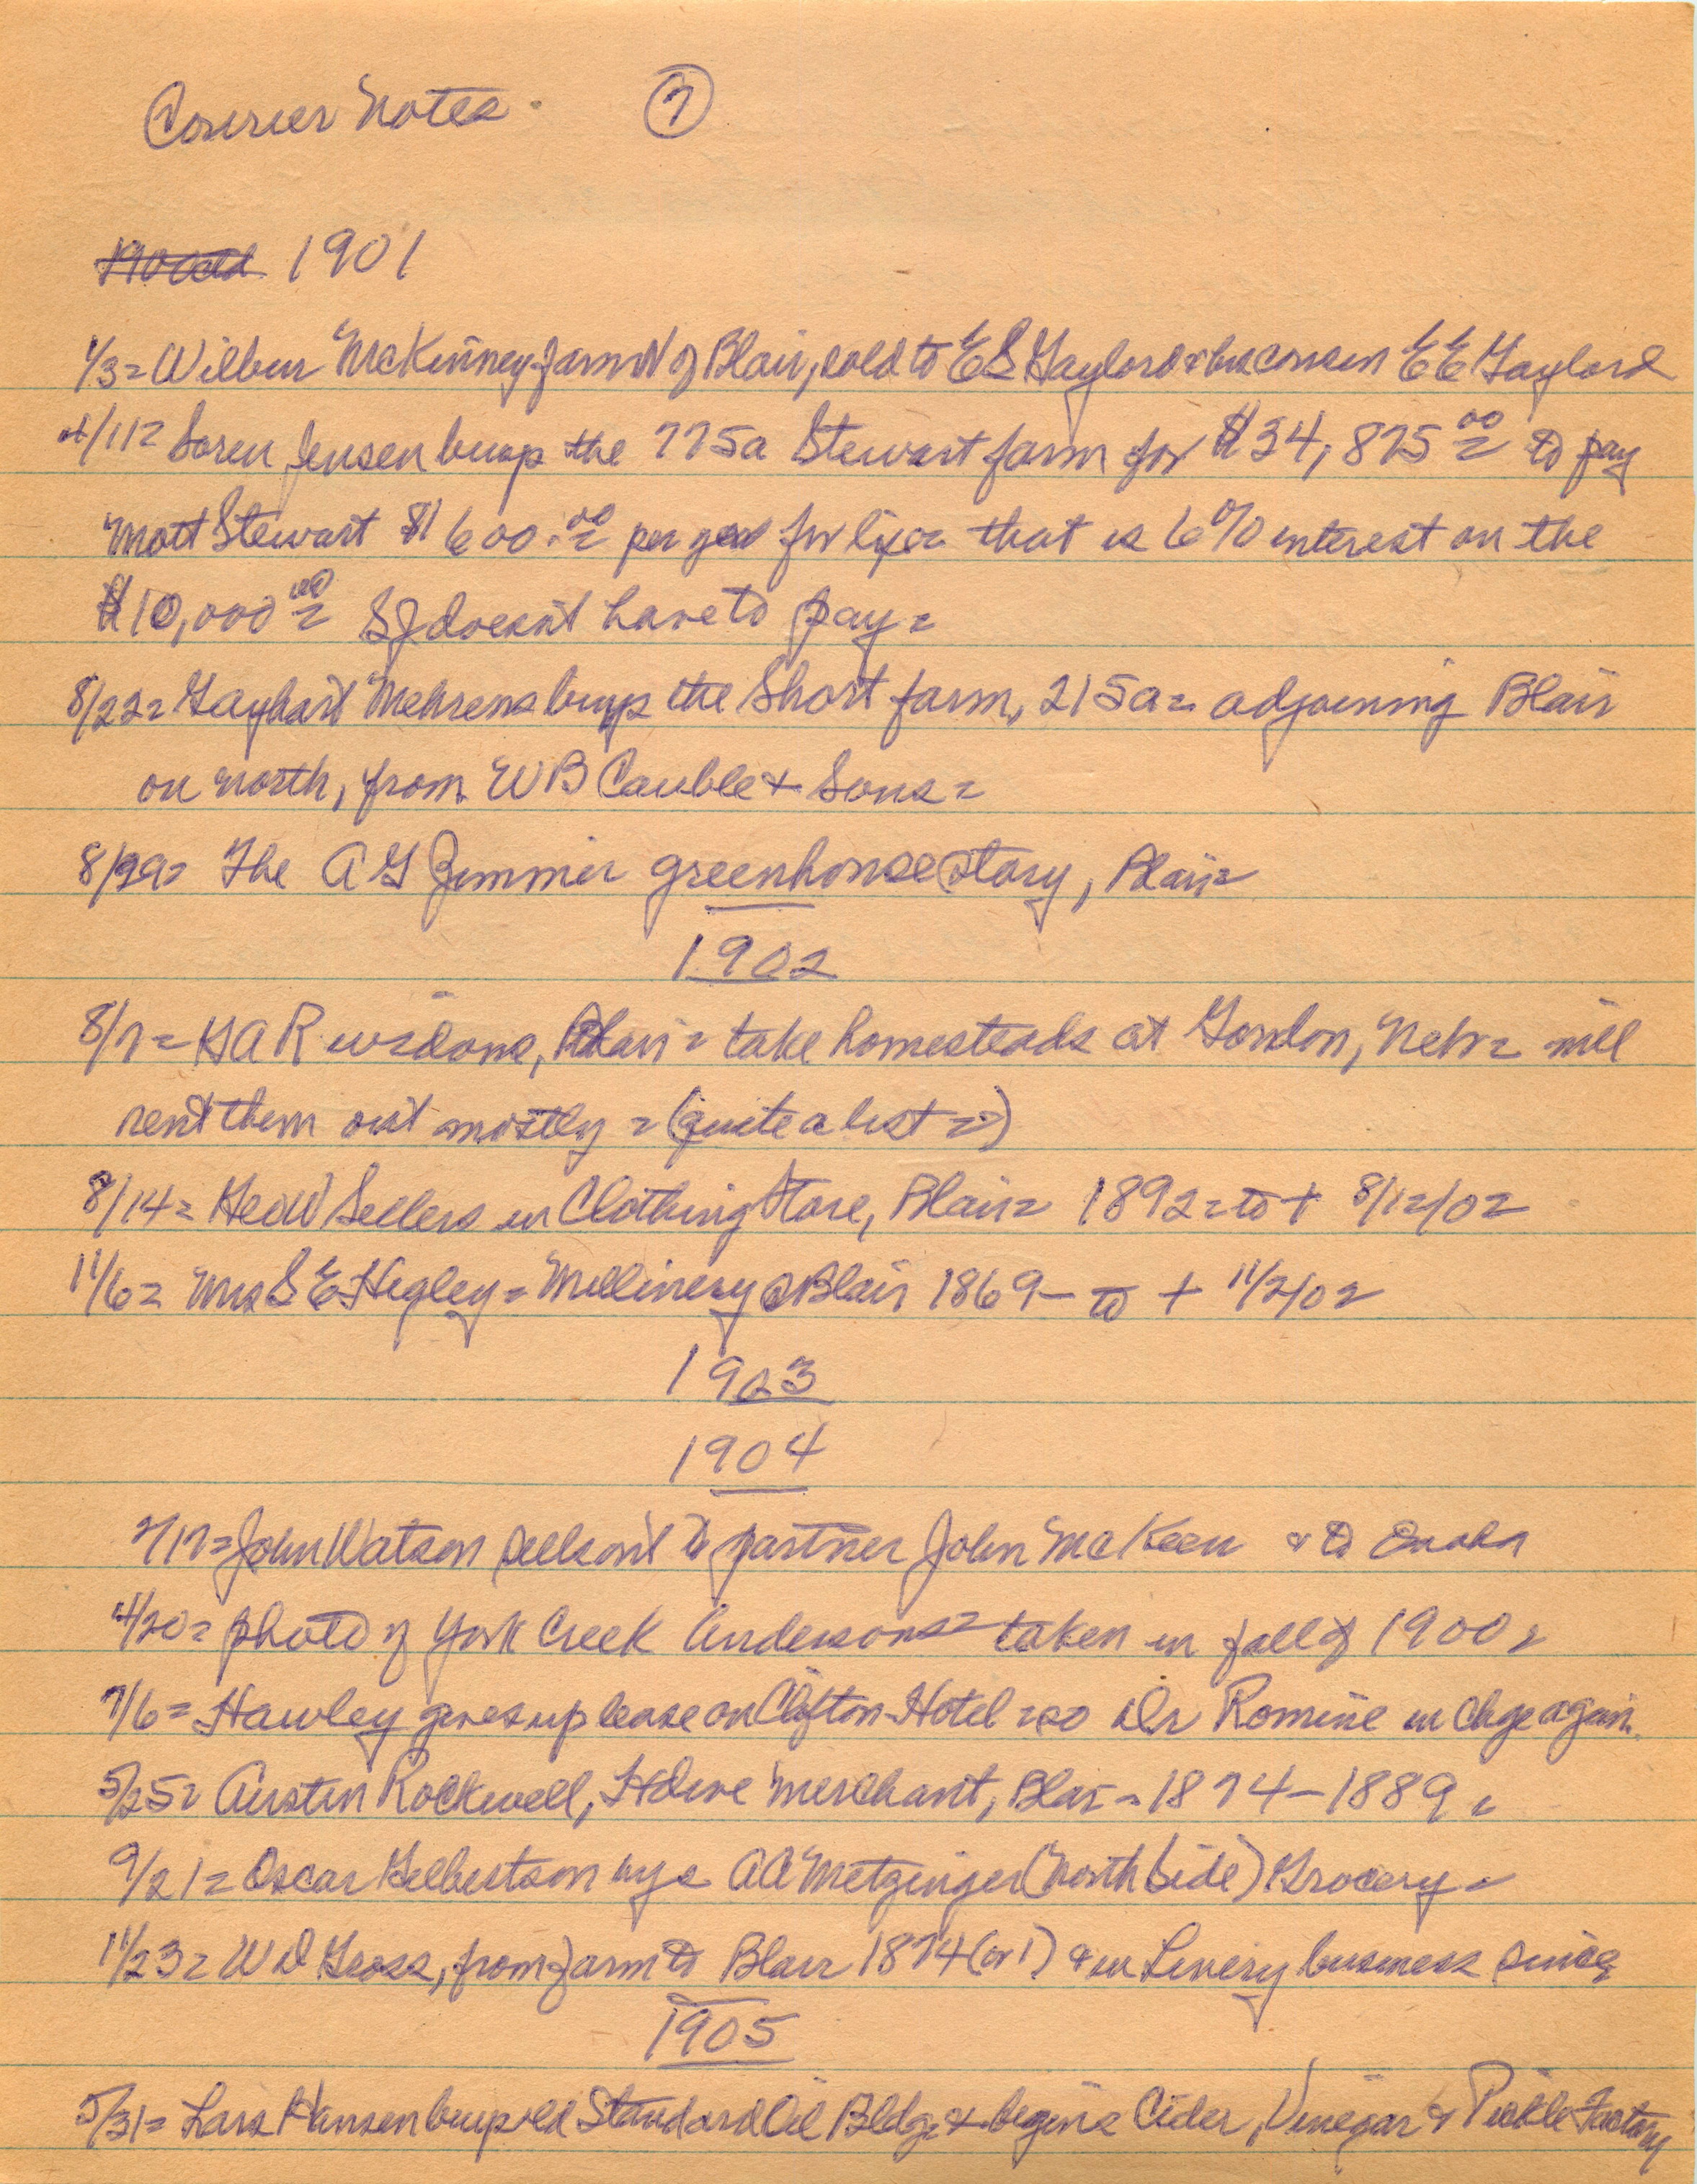 Courier Notes. 7
1901
1/3= Wilbur McKinney farm N of Blair, sold to E S Gaylord & his cousin E E Gaylord
4/11= Soren Jensen buys the 775a Stewart farm for $34,875.00 = to pay
Mott Stewart $600.00 = per year for life= that is 6% interest on the
$10,000.00 = SJ doesn't have to pay=
8/22= Gayhart Mehrens buys the Short farm, 215a= adjoining Blair
on north, from W B Cauble & Sons=
8/29= The A G Jimmer greenhouse story, Blair=
1902
8/7= GAR widows, Blair= take homesteads at Gordon, Nebr= will
rent them out mostly = (quite a list =)
8/14= Geo W Sellers in Clothing Store, Blair= 1892= to + 8/12/02
11/6= Mrs S E Higley= Millinery @ Blair 1869- to + 11/2/02
1903
1904
2/17= John Watson sells out to partner John McKeen & to Omaha
4/20= photo of York Creek Andersons= taken in fall of 1900=
7/6= Hawley gives up lease on Clifton Hotel = so Dr Romine in chge again.
5/25= Austin Rockwell, Hdwe Merchant, Blair= 1874-1889=
9/21= Oscar Gilbertson buys A A Metzinger (North Side) Grocery=
11/23= W D Gross, from farm to Blair 1874 (or 1) & in Livery business since
1905
5/31= Lars Hansen buys old Standard Oil Bldg & begins Cider, Vinegar & Pickle Factory